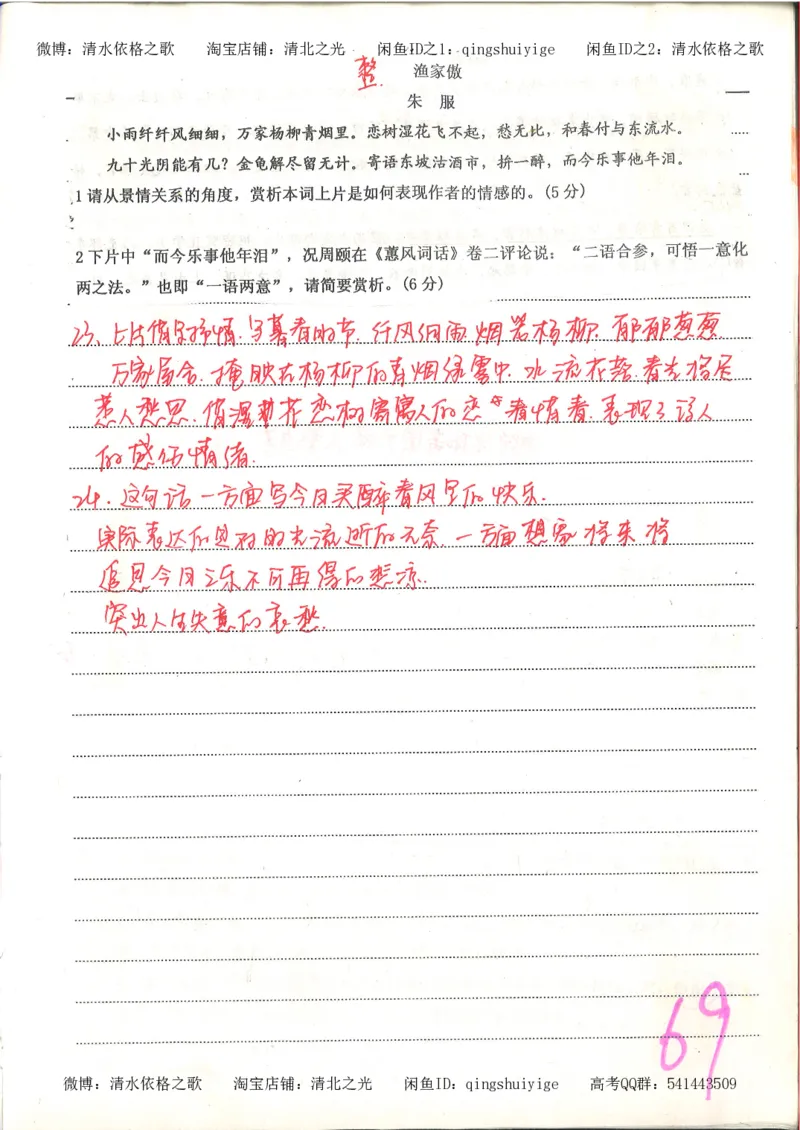 微博：清水依格之歌 淘宝店铺：清北之光 闲鱼ID之1：qingshuiyige 闲鱼ID之2：清水依格之歌
整
渔家傲
朱 服
小雨纤纤风细细，万家杨柳青烟里。恋树湿花飞不起，愁无比，和春付与东流水。
九十光阴能有几？金龟解尽留无计。寄语东坡沽酒市，拚一醉，而今乐事他年泪。
1请从景情关系的角度，赏析本词上片是如何表现作者的情感的。(5分)
2下片中“而今乐事他年泪”，况周颐在《蕙风词话》卷二评论说：“二语合参，可悟一意化
两之法。”也即“一语两意”，请简要赏析。(6分)
23、上片借景抒情，写暮春时节，纤风细雨，烟笼杨柳，郁郁葱葱，
万家屋舍，掩映在杨柳的青烟绿雾中，水流花落，春去将尽
惹人愁思，借湿花恋树寄寓人的恋春惜春，表现了诗人
的感伤情绪。
24．这句话一方面写今日买醉春风里的快乐．
实际表达的是对时光流逝的无奈，一方面想象将来将
追思今日之乐不可再得的悲凉．
突出人生失意的哀愁．
69
微博：清水依格之歌 淘宝店铺：清北之光 闲鱼ID：qingshuiyige 高考QQ群：541443509